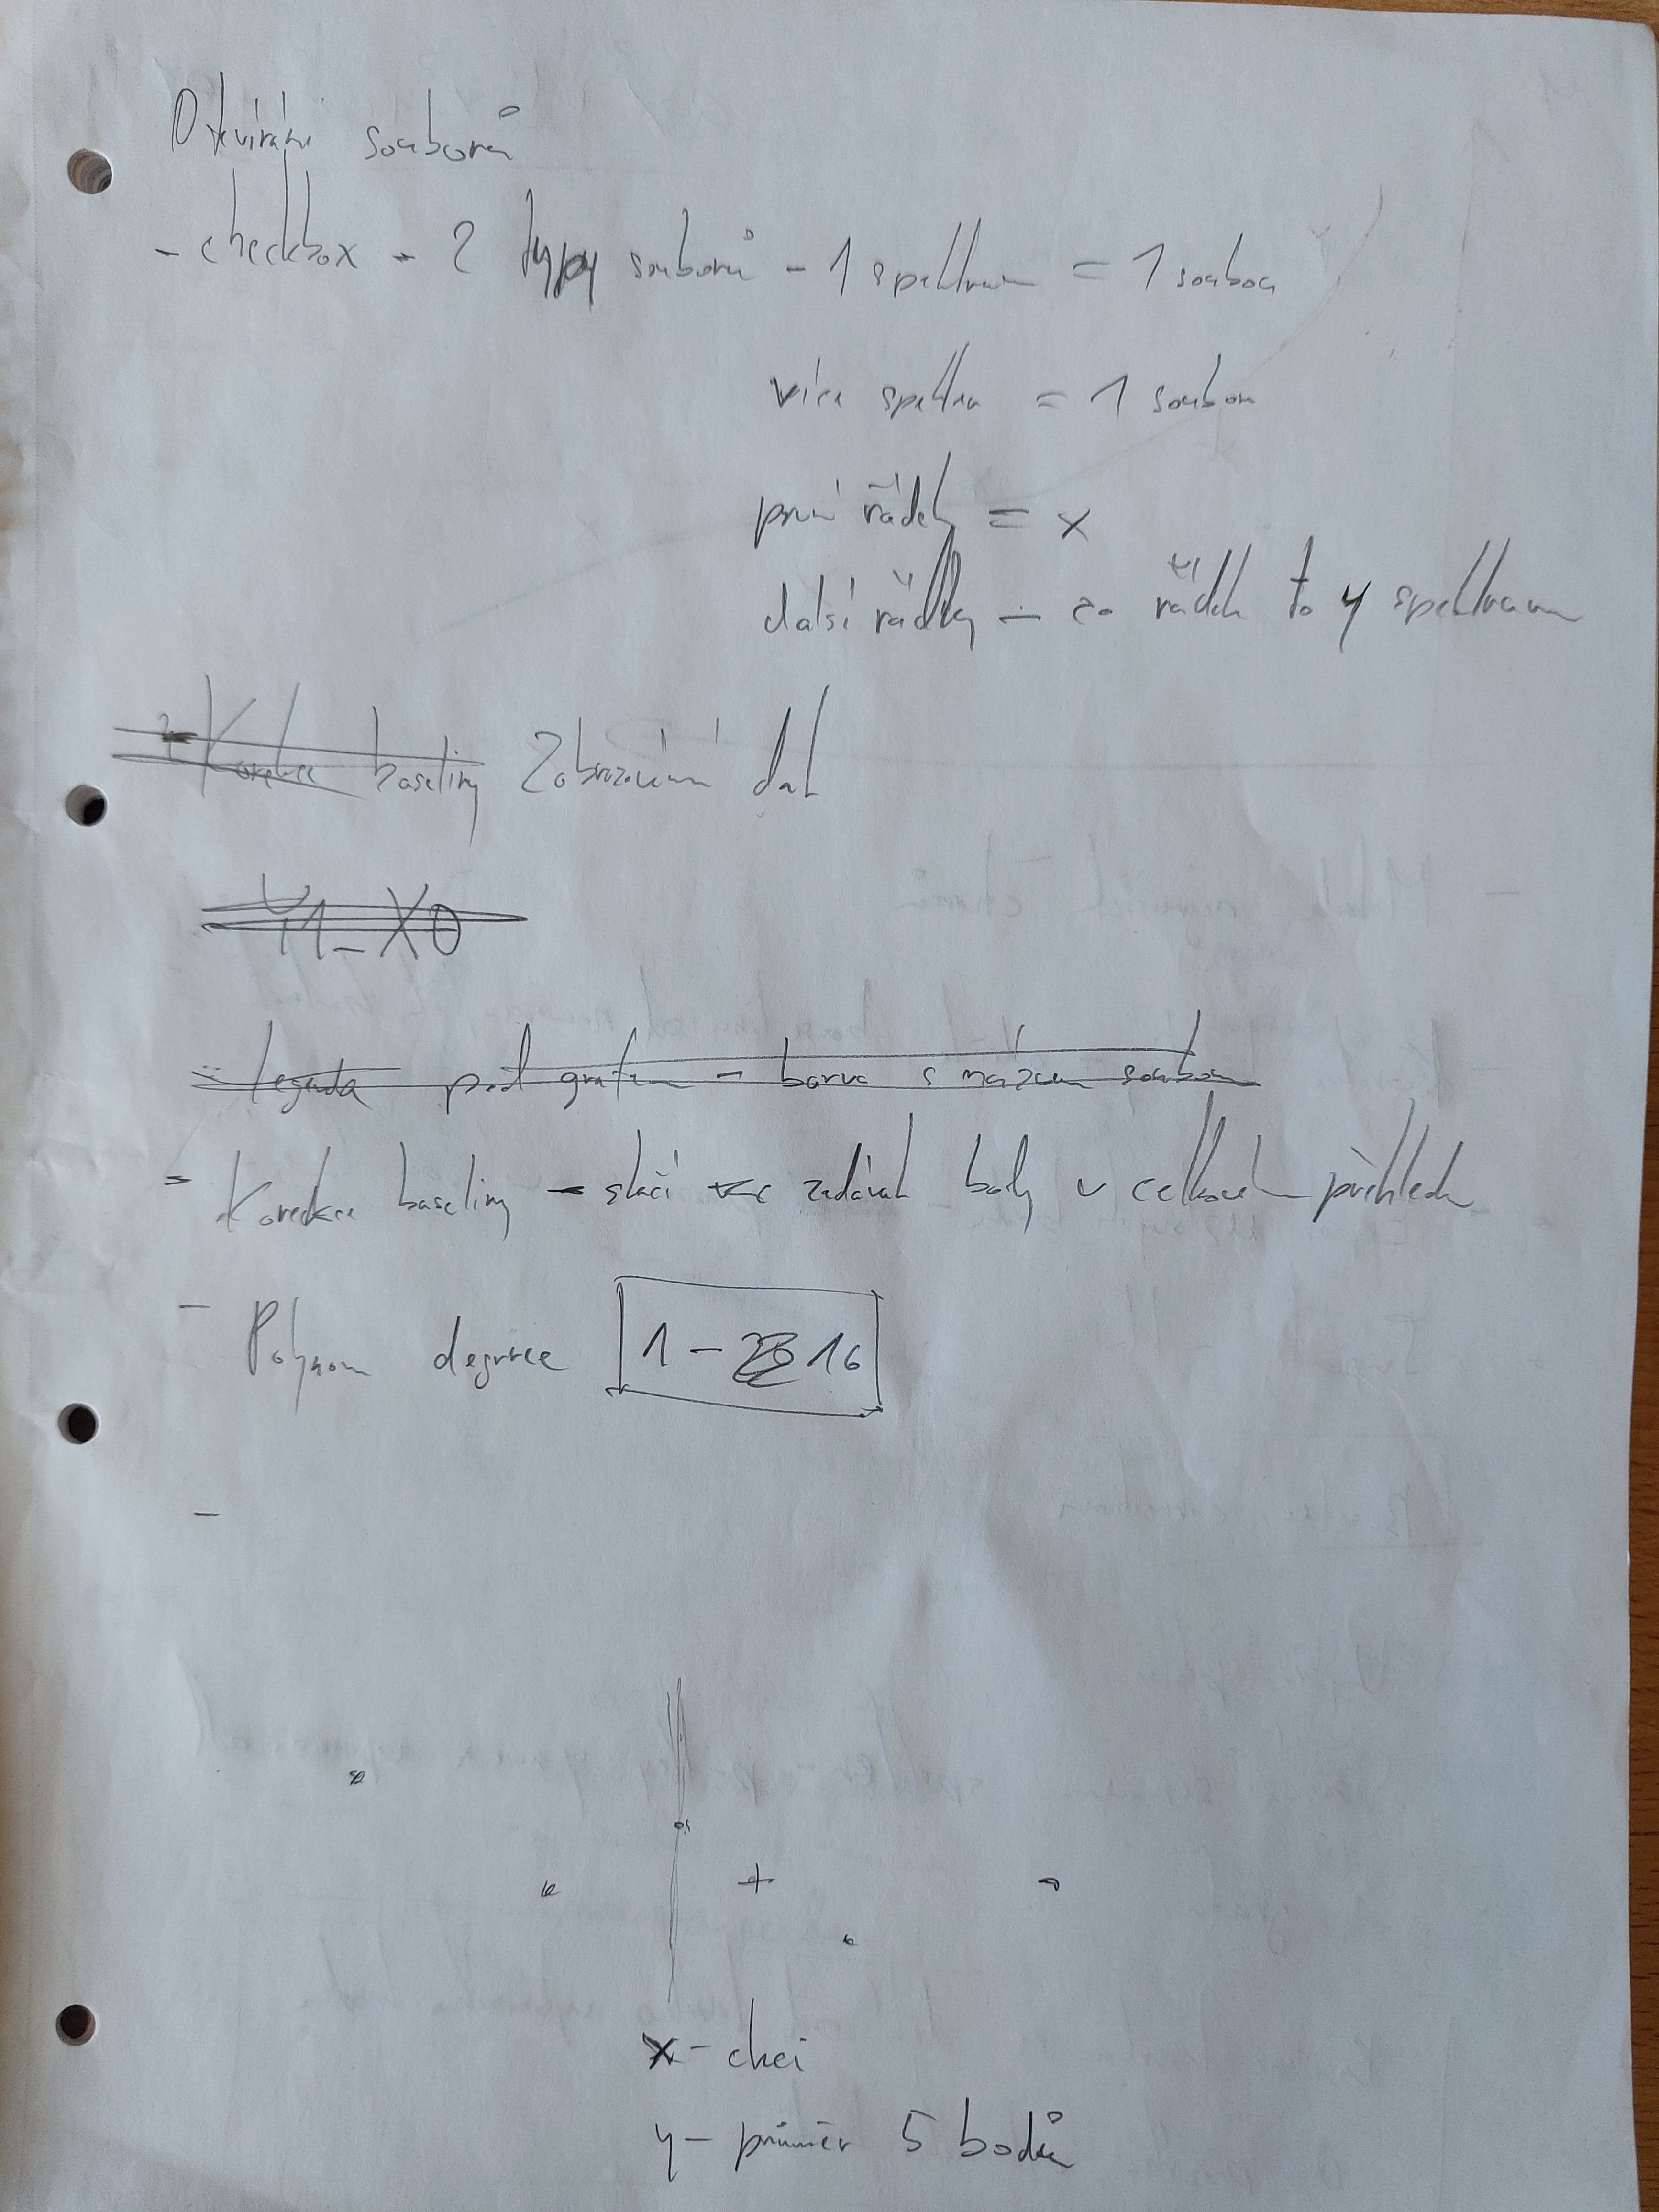 Otevírání souborů
- checkbox - 2 typy souborů - 1 spektrum = 1 soubor
více spekter = 1 soubor
první řádek = x
další řádky - co řádek to y spektrum
Korekce baseliny Zobrazování dat
Y1_X0
- legenda pod grafem - barva s názvem souboru
- Korekce baseliny - stačí zadávat body v celkovém přehledu
- Polynom degree 1 - 16
-
x - chci
y - průměr 5 bodů